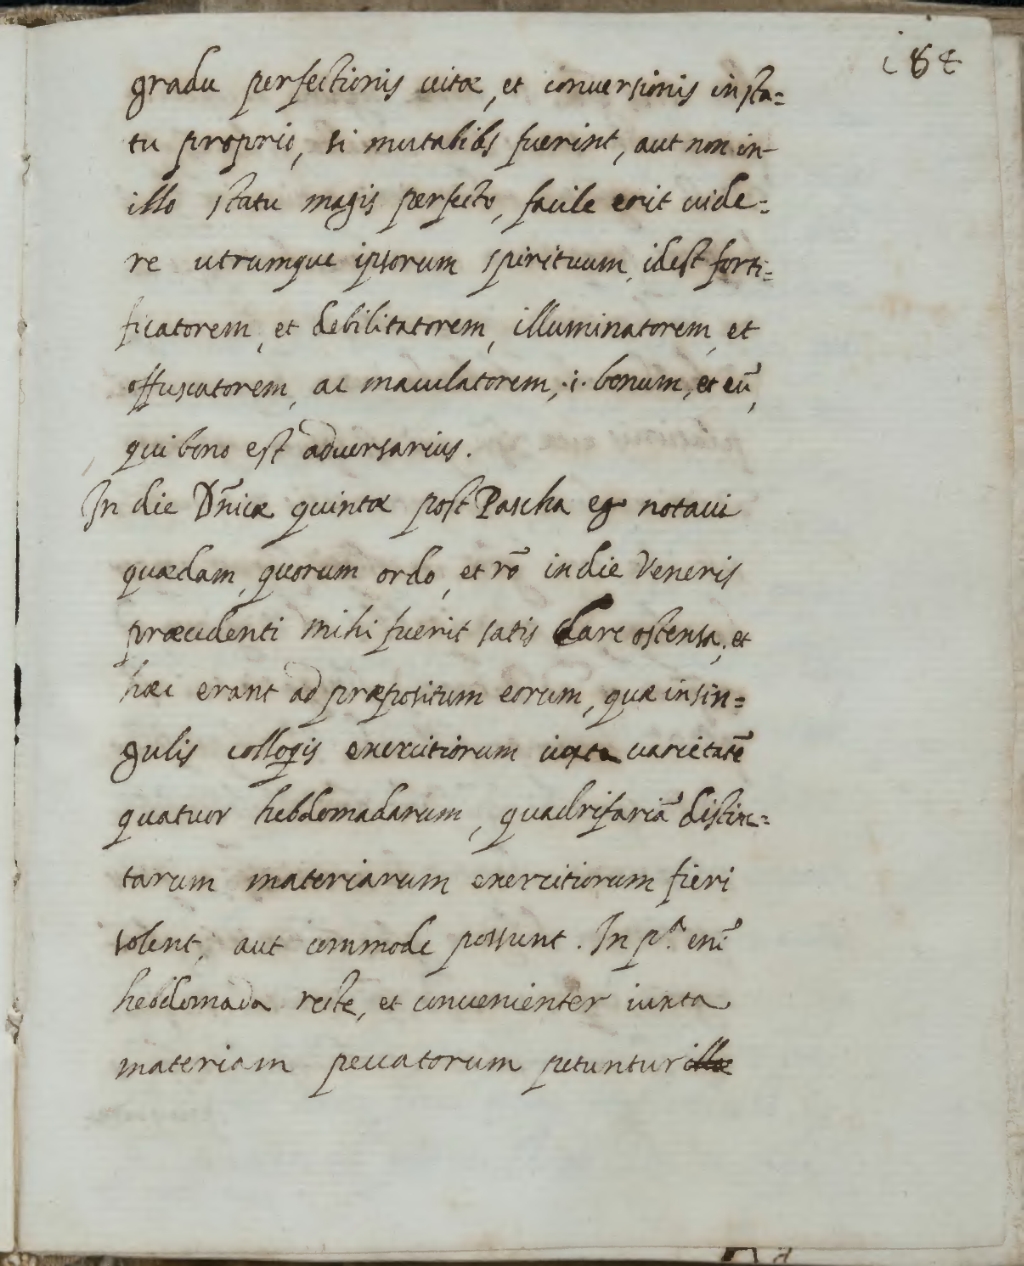 188
gradu perfectionis uitæ, et conuersionis in sta=
tu proprio, si mutabiles fuerint, aut non in
illo statu magis perfecto, facile erit uide=
re utrumque ipsorum spirituum, idest forti=
ficatorem, et debilitatorem, illuminatorem, et
offuscatorem, ac maculatorem, .i. bonum, et eũ,
qui bono est aduersarius.
In die Dñicæ quintæ post Pascha ego notaui
quædam, quorum ordo, et rõ in die Veneris
præcedenti mihi fuerit satis clare ostensa, et
hæc erant ad præpositum eorum, quæ in sin=
gulis colloqis exercitiorum iuxta uarietatẽ
quatuor hebdomadarum, quadrifariã distinc=
tarum materiarum exercitiorum fieri
solent, aut commode possunt. In p.ª enĩ
hebdomada recte, et conuenienter iuxta
materiam peccatorum petuntur illæ